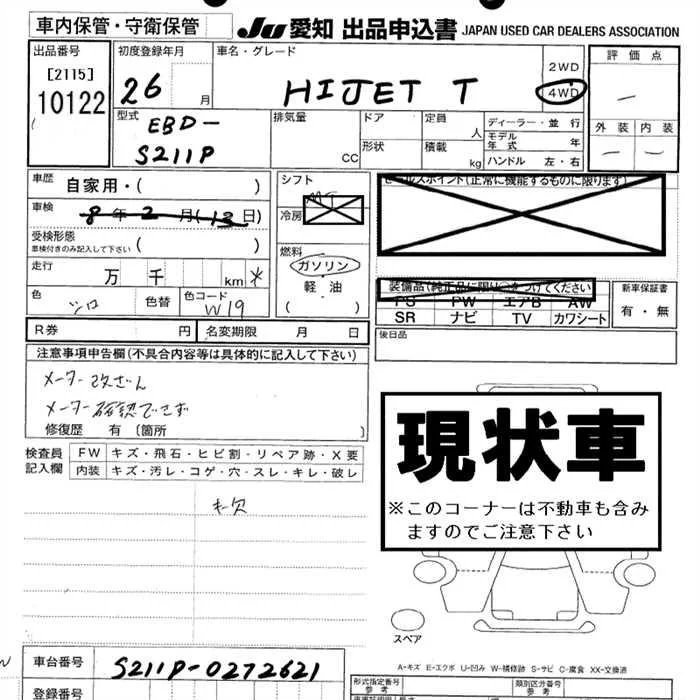 車内保管・守衛保管
JU 愛知 出品申込書 JAPAN USED CAR DEALERS ASSOCIATION
出品番号
[2115]
10122
初度登録年月
26 月
車名・グレード
HIJET T
2WD
4WD
評価点
ー
外装 内装
ー ー
型式
EBD-
S211P
排気量
CC
ドア
形状
定員
人
積載
kg
ディーラー・並行
モデル年式 年
ハンドル 左・右
車歴 自家用・( )
車検 8年2月(13日)
受検形態
車検付きのみ記入して下さい ( )
走行 万 千 km
色 シロ 色替 色コード W19
シフト MT
冷房
燃料
ガソリン
軽油
( )
セールスポイント(正常に機能するものに限ります)
装備品(純正品に限り○をつけてください)
PS PW エアB AW
SR ナビ TV カワシート
新車保証書
有・無
R券 円 名変期限 月 日
後日品
注意事項申告欄(不具合内容等は具体的に記入して下さい)
メーター改ざん
メーター確認できず
修復歴 有 〔箇所
現状車
※このコーナーは不動車も含み
ますのでご注意下さい
検査員
記入欄
FW キズ・飛石・ヒビ割・リペア跡・X要
内装 キズ・汚レ・コゲ・穴・スレ・キレ・破レ
キー欠
スペア
A-キズ E-エクボ U-凹み W-補修跡 S-サビ C-腐食 XX-交換済
車台番号 S211P-0272621
登録番号
形式指定番号
参考
類別区分番号
参考